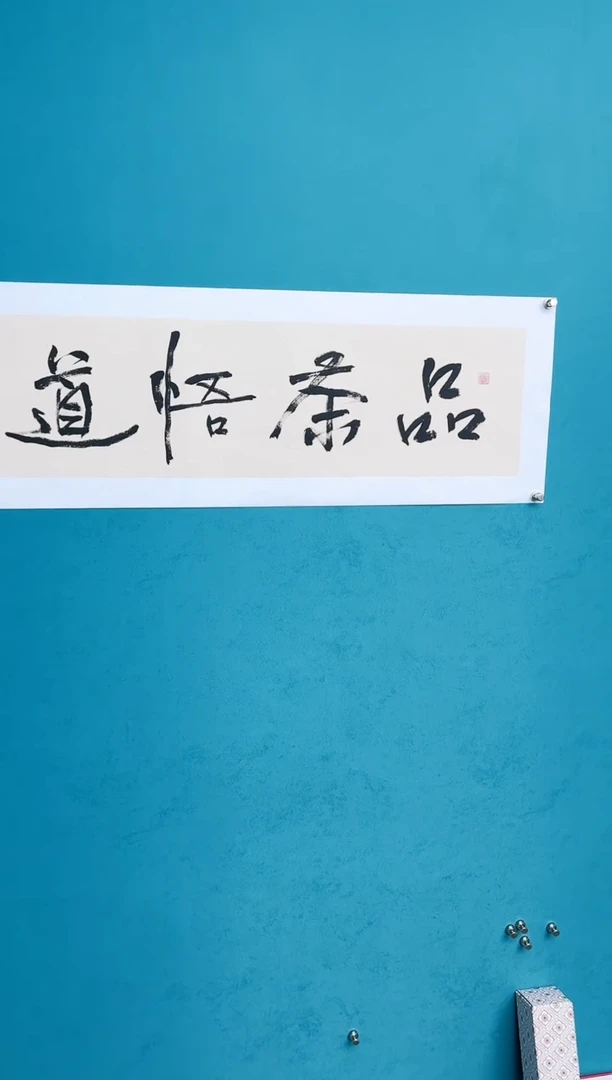 品茶悟道